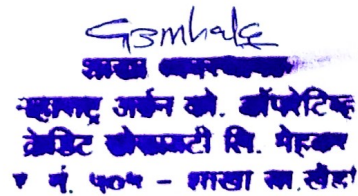 GBmhale
शाखा व्यवस्थापक
महाराष्ट्र अर्बन को. ऑपरेटिव्ह
क्रेडिट सोसायटी लि. मेहकर
र नं. ५०५ - शाखा